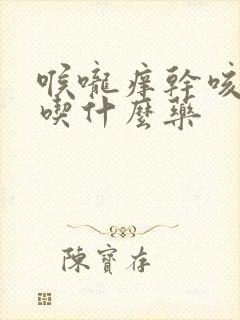 喉嚨痒幹咳
喫什麼藥
陳寶存